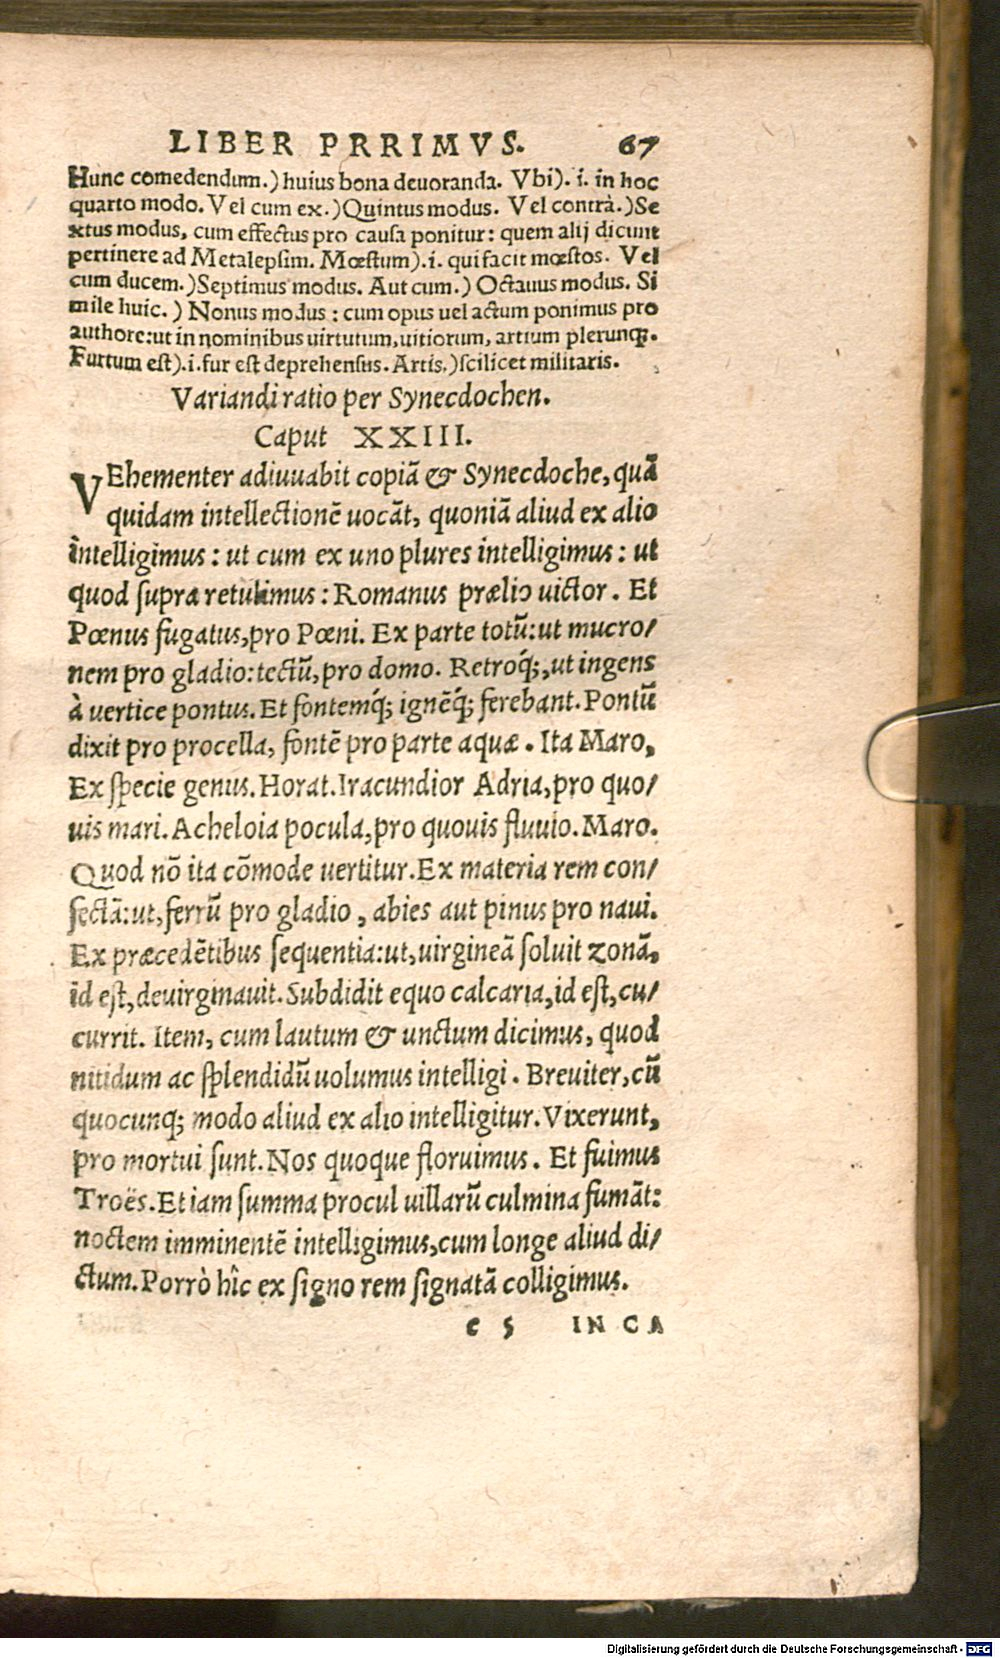 LIBER PRRIMVS. 67
Hunc comedendum.) huius bona deuoranda. Vbi). i. in hoc
quarto modo. Vel cum ex.) Quintus modus. Vel contrà.) Se
xtus modus, cum effectus pro causa ponitur: quem alij dicunt
pertinere ad Metalepsim. Mœstum). i. qui facit mœstos. Vel
cum ducem.) Septimus modus. Aut cum.) Octauus modus. Si
mile huic.) Nonus modus: cum opus uel actum ponimus pro
authore: ut in nominibus uirtutum, uitiorum, artium plerunq̃.
Furtum est). i. fur est deprehensus. Artis.) scilicet militaris.
Variandi ratio per Synecdochen.
Caput XXIII.
VEhementer adiuuabit copiã & Synecdoche, quã
quidam intellectionẽ uocãt, quoniã aliud ex alio
intelligimus: ut cum ex uno plures intelligimus: ut
quod supra retulimus: Romanus prælio uictor. Et
Pœnus fugatus, pro Pœni. Ex parte totũ: ut mucro/
nem pro gladio: tectũ, pro domo. Retroq́;, ut ingens
à uertice pontus. Et fontemq́; ignẽq́; ferebant. Pontũ
dixit pro procella, fontẽ pro parte aquæ. Ita Maro,
Ex specie genus. Horat. Iracundior Adria, pro quo/
uis mari. Acheloia pocula, pro quouis fluuio. Maro.
Quod nõ ita cõmode uertitur. Ex materia rem con/
fectã: ut, ferrũ pro gladio, abies aut pinus pro naui.
Ex præcedẽtibus sequentia: ut, uirgineã soluit zonã,
id est, deuirginauit. Subdidit equo calcaria, id est, cu/
currit. Item, cum lautum & unctum dicimus, quod
nitidum ac splendidũ uolumus intelligi. Breuiter, cũ
quocunq; modo aliud ex alio intelligitur. Vixerunt,
pro mortui sunt. Nos quoque floruimus. Et fuimus
Troës. Et iam summa procul uillarũ culmina fumãt:
noctem imminentẽ intelligimus, cum longe aliud di/
ctum. Porrò hîc ex signo rem signatã colligimus.
e 5 IN CA
Digitalisierung gefördert durch die Deutsche Forschungsgemeinschaft - DFG